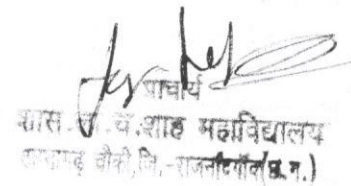 प्राचार्य
शास. च. शाह महाविद्यालय
चौकी, जि.-राजनांदगांव(छ.ग.)